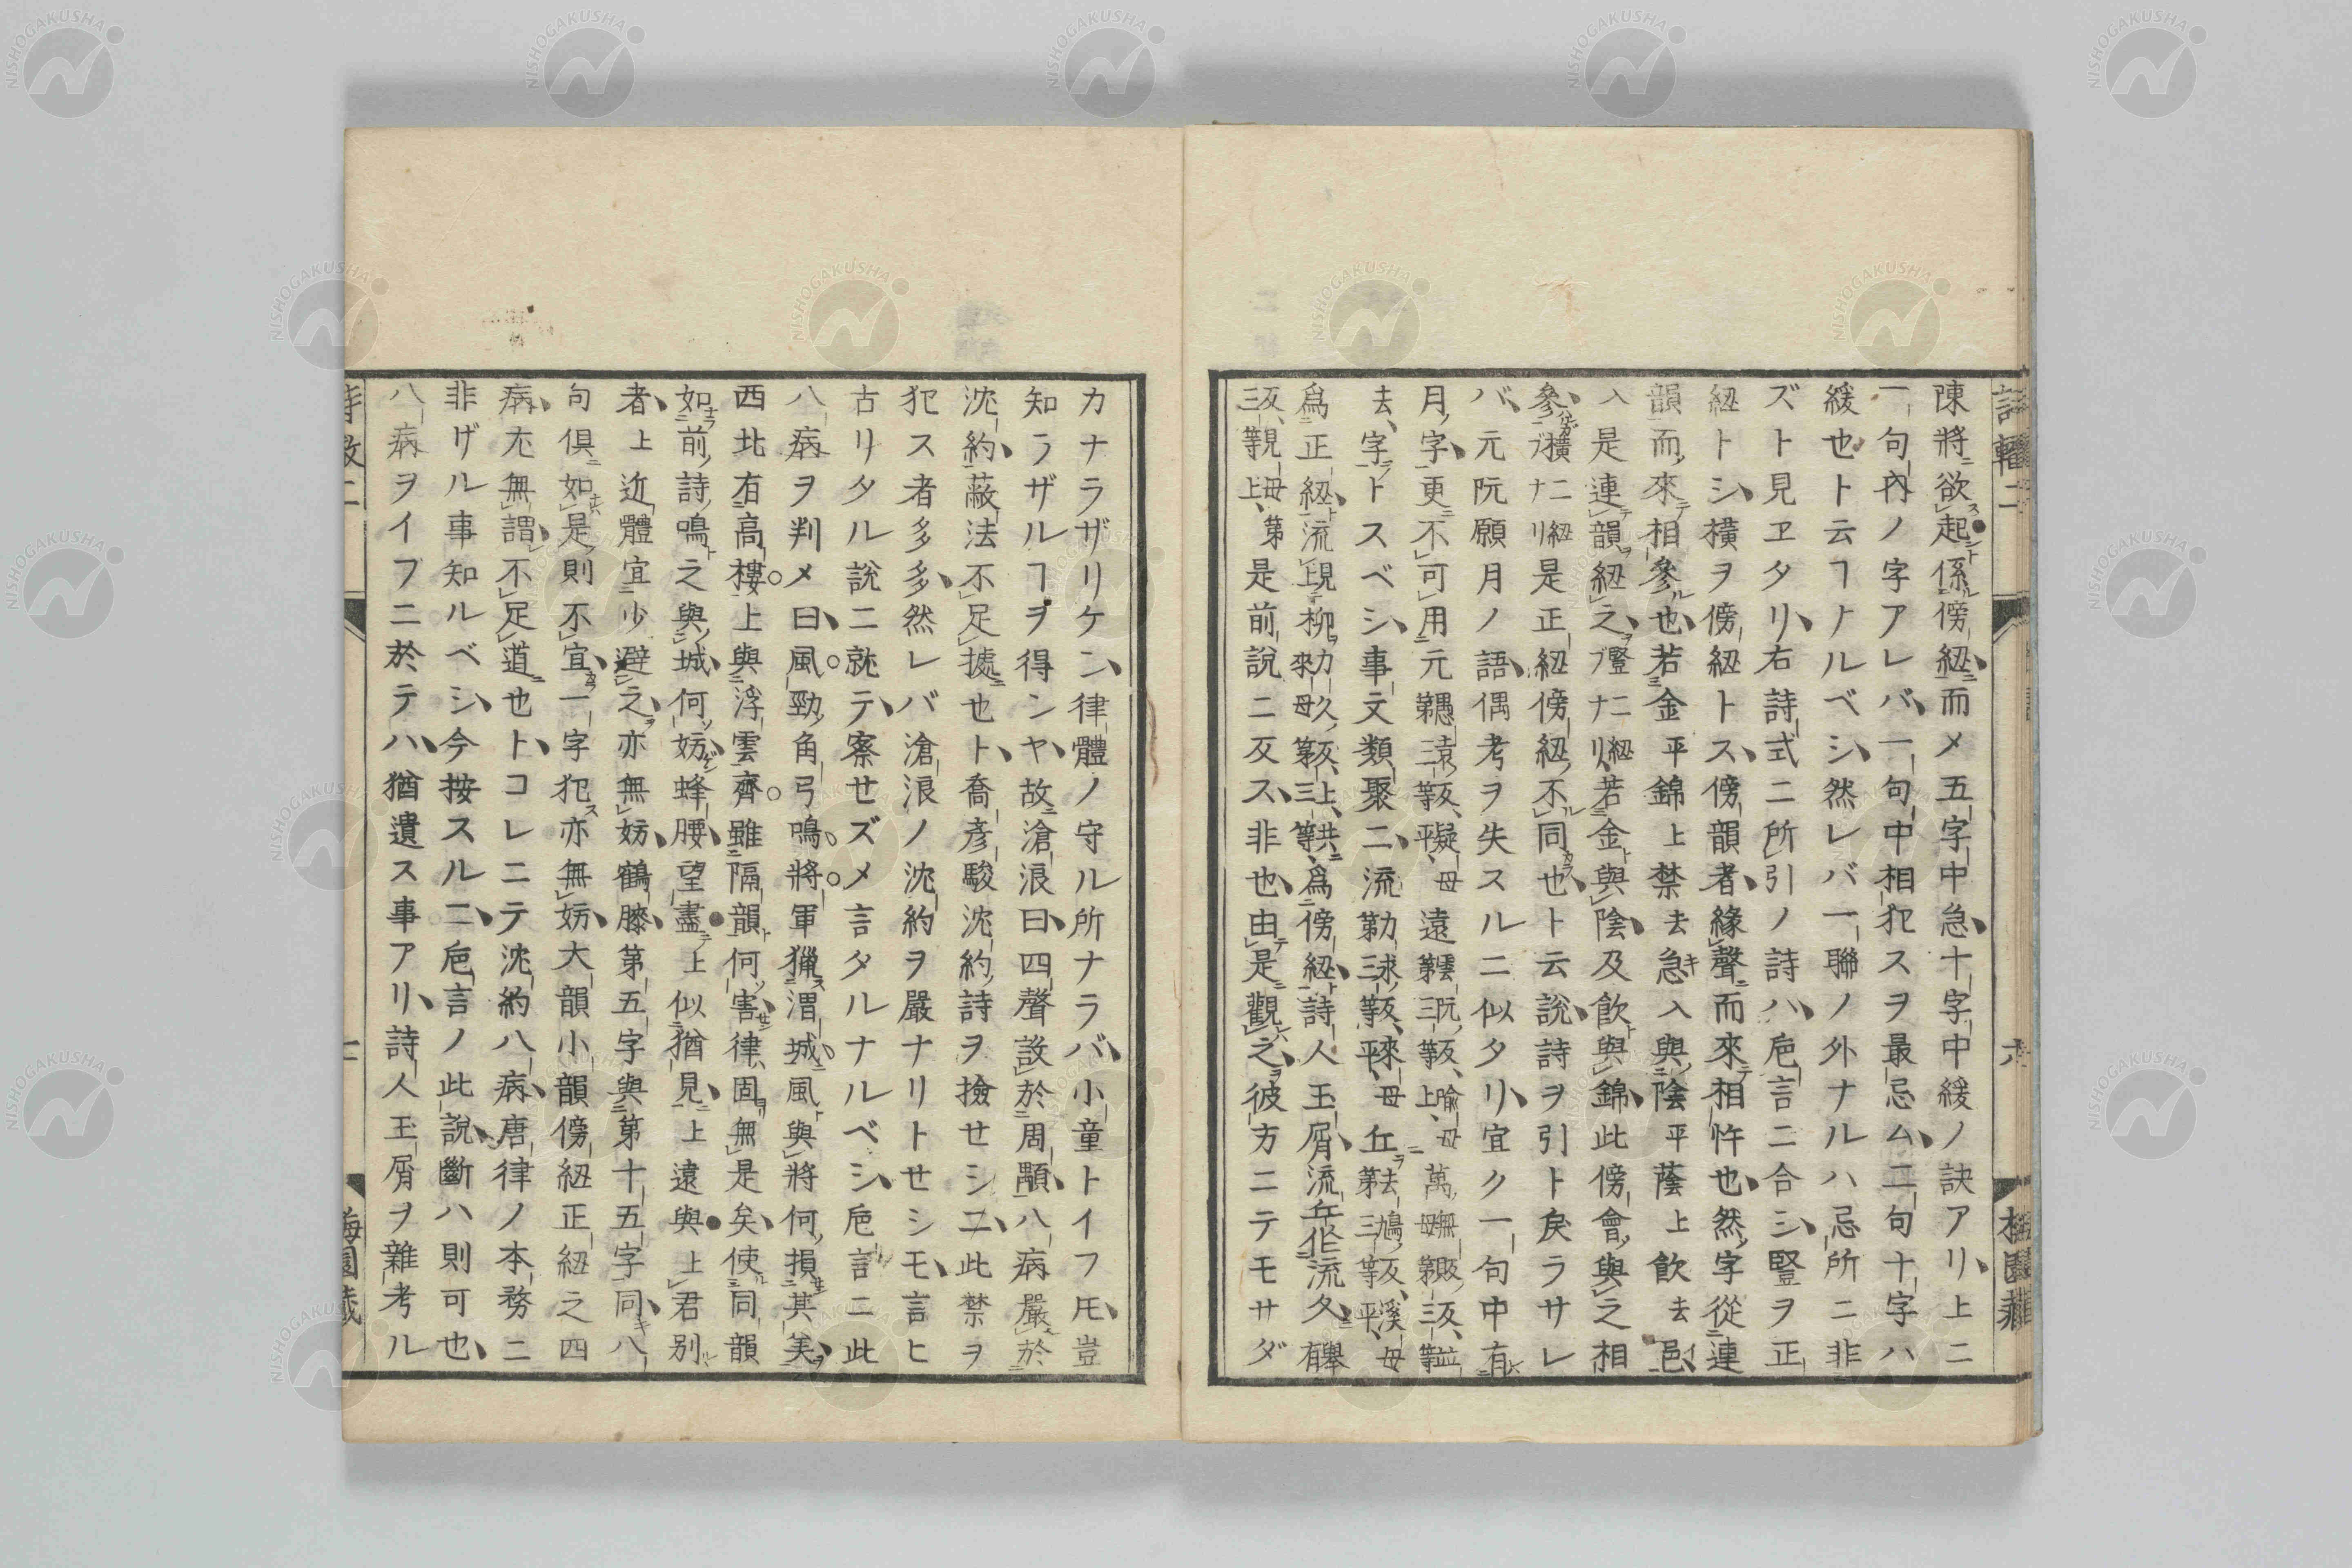 陳將欲起係傍紐而メ五字中急十字中緩ノ訣アリ上ニ
一句內ノ字アレバ一句中相犯スヲ最忌ム二句十字ハ
緩也ト云フナルベシ然レバ一聯ノ外ナルハ忌所ニ非
ズト見ヱタリ右詩式ニ所引ノ詩ハ巵言ニ合シ豎ヲ正
紐トシ橫ヲ傍紐トス傍韻者緣聲而來相忤也然字從連
韻而來相參也若金平錦上禁去急入與陰平蔭上飲去邑
入是連韻紐之豎ニ紐ブナリ若金與陰及飲與錦此傍會與之相
參橫ニ紐ブナリ是正紐傍紐不同也ト云說詩ヲ引ト戾ラサレ
バ元阮願月ノ語偶考ヲ失スルニ似タリ宜ク一句中有
月字更不可用元愚遠反第三等平疑母遠雲阮反第三等上喻母萬無販反第三等去
去字トスベシ事文類聚ニ流力求反第三等平來母丘去鳩反第三等平溪母
爲正紐流覘柳力久反上第三等來母共爲傍紐詩人玉屑流丘作流久有舉
是前說ニ反ス非也由是觀之彼方ニテモサダ
カナラザリケン律體ノ守ル所ナラバ小童トイフ𪜈豈
知ラザルヿヲ得ンヤ故滄浪曰四聲設於周顒八病嚴於
沈約蔽法不足據也ト喬彥駿沈約詩ヲ撿セシニ此禁ヲ
犯ス者多多然レバ滄浪ノ沈約ヲ嚴ナリトセシモ言ヒ
古リタル說ニ就テ察セズメ言タルナルベシ巵言ニ此
八病ヲ判メ曰風勁角弓鳴將軍獵渭城風與將何損其美
西北有高樓上與浮雲齊雖隔韻何害律固無是矣使同韻
如前詩鳴之與城何妨蜂腰望盡似猶見上遠與上君別
者上近體宜少避之亦無妨鶴膝第五字與第十五字同八
句俱如是則不宜一字犯亦無妨大韻小韻傍紐正紐之四
病尤無謂不足道也トコレニテ沈約八病唐律ノ本務ニ
非ザル事知ルベシ今按スルニ巵言ノ此說斷ハ則可也
八病ヲイフニ於テハ猶遺ス事アリ詩人玉屑ヲ雜考ル